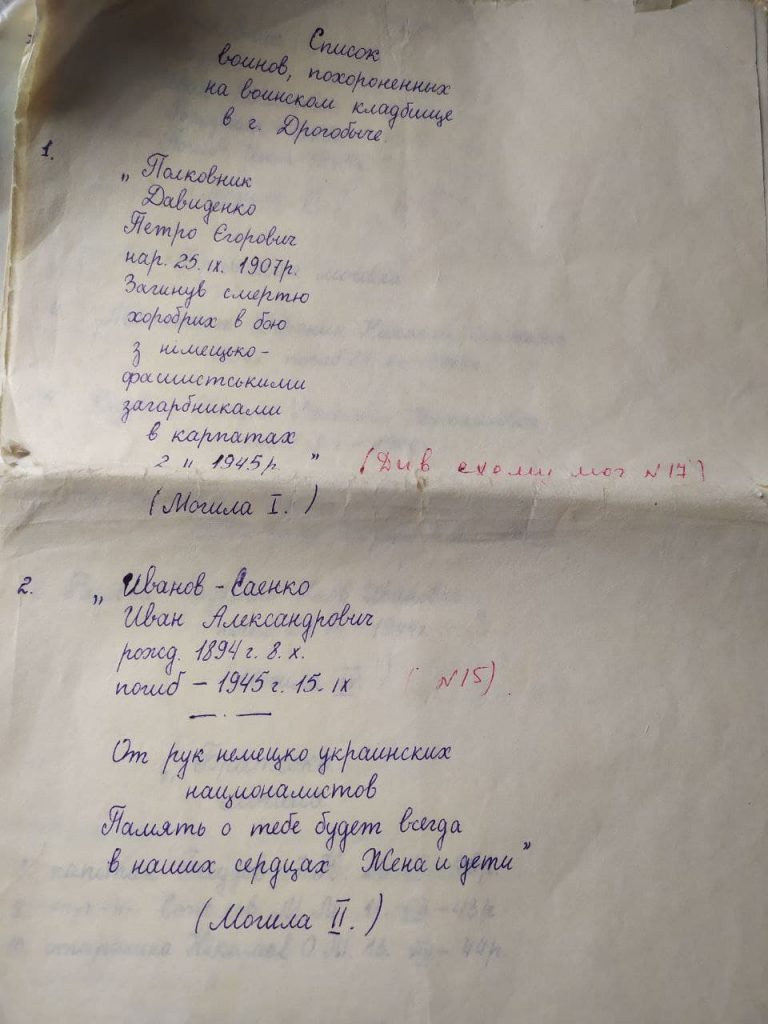 Список
воинов, похороненных
на воинском кладбище
в г. Дрогобыче.
1.
„Полковник
Давиденко
Петро Єгорович
нар. 25. ІХ. 1907р.
Загинув смертю
хоробрих в бою
з німецько-
фашистськими
загарбниками
в карпатах
2 ІІ 1945р. " (Див схему мог №17)
(Могила І.)
2. „Иванов - Саенко
Иван Александрович
рожд. 1894 г. 8. х.
погиб - 1945 г. 15. ІХ (№15)
— . —
От рук немецко украинских
националистов
Память о тебе будет всегда
в наших сердцах Жена и дети"
(Могила ІІ.)